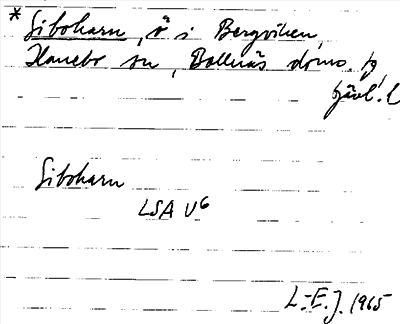 * Siboharn, ö i Bergviken,
Hanebo sn, Bollnäs doms. tg
Gävl. l
Siboharn
LSA U6
L.-E. J. 1965